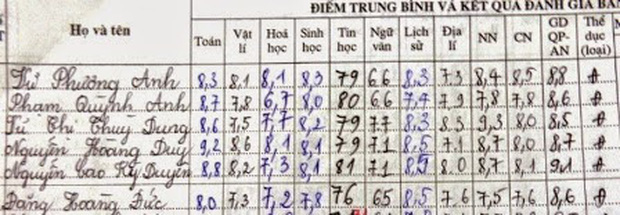 ĐIỂM TRUNG BÌNH VÀ KẾT QUẢ ĐÁNH GIÁ
Họ và tên Toán Vật lí Hoá học Sinh học Tin học Ngữ văn Lịch sử Địa lí NN CN GD QP-AN Thể dục (loại)
Từ Phương Anh 8,3 8,1 8,1 8,3 79 6.6 8,3 7.3 8,4 8,5 8,8 Đ
Phạm Quỳnh Anh 8,7 7,8 6,7 8,0 80 6.6 7,4 7.9 7,8 7,8 8,6 Đ
Từ Thị Thuỳ Dung 8,6 7,5 7,7 8,2 79 7.7 8,3 8.3 9,3 8.0 8,5 Đ
Nguyễn Hoàng Duy 9,2 8,6 8,1 8,1 79 7.1 8,5 7.1 8,7 8,0 8,7 Đ
Nguyễn Cao Kỳ Duyên 8,8 8,2 7,3 8,1 81 7.1 8,5 8.0 8,7 8,1 9,1 Đ
Đặng Hoàng Đức 8,0 7,3 7,2 7,8 76 6.5 8,5 7.6 7,5 7,6 8,6 Đ